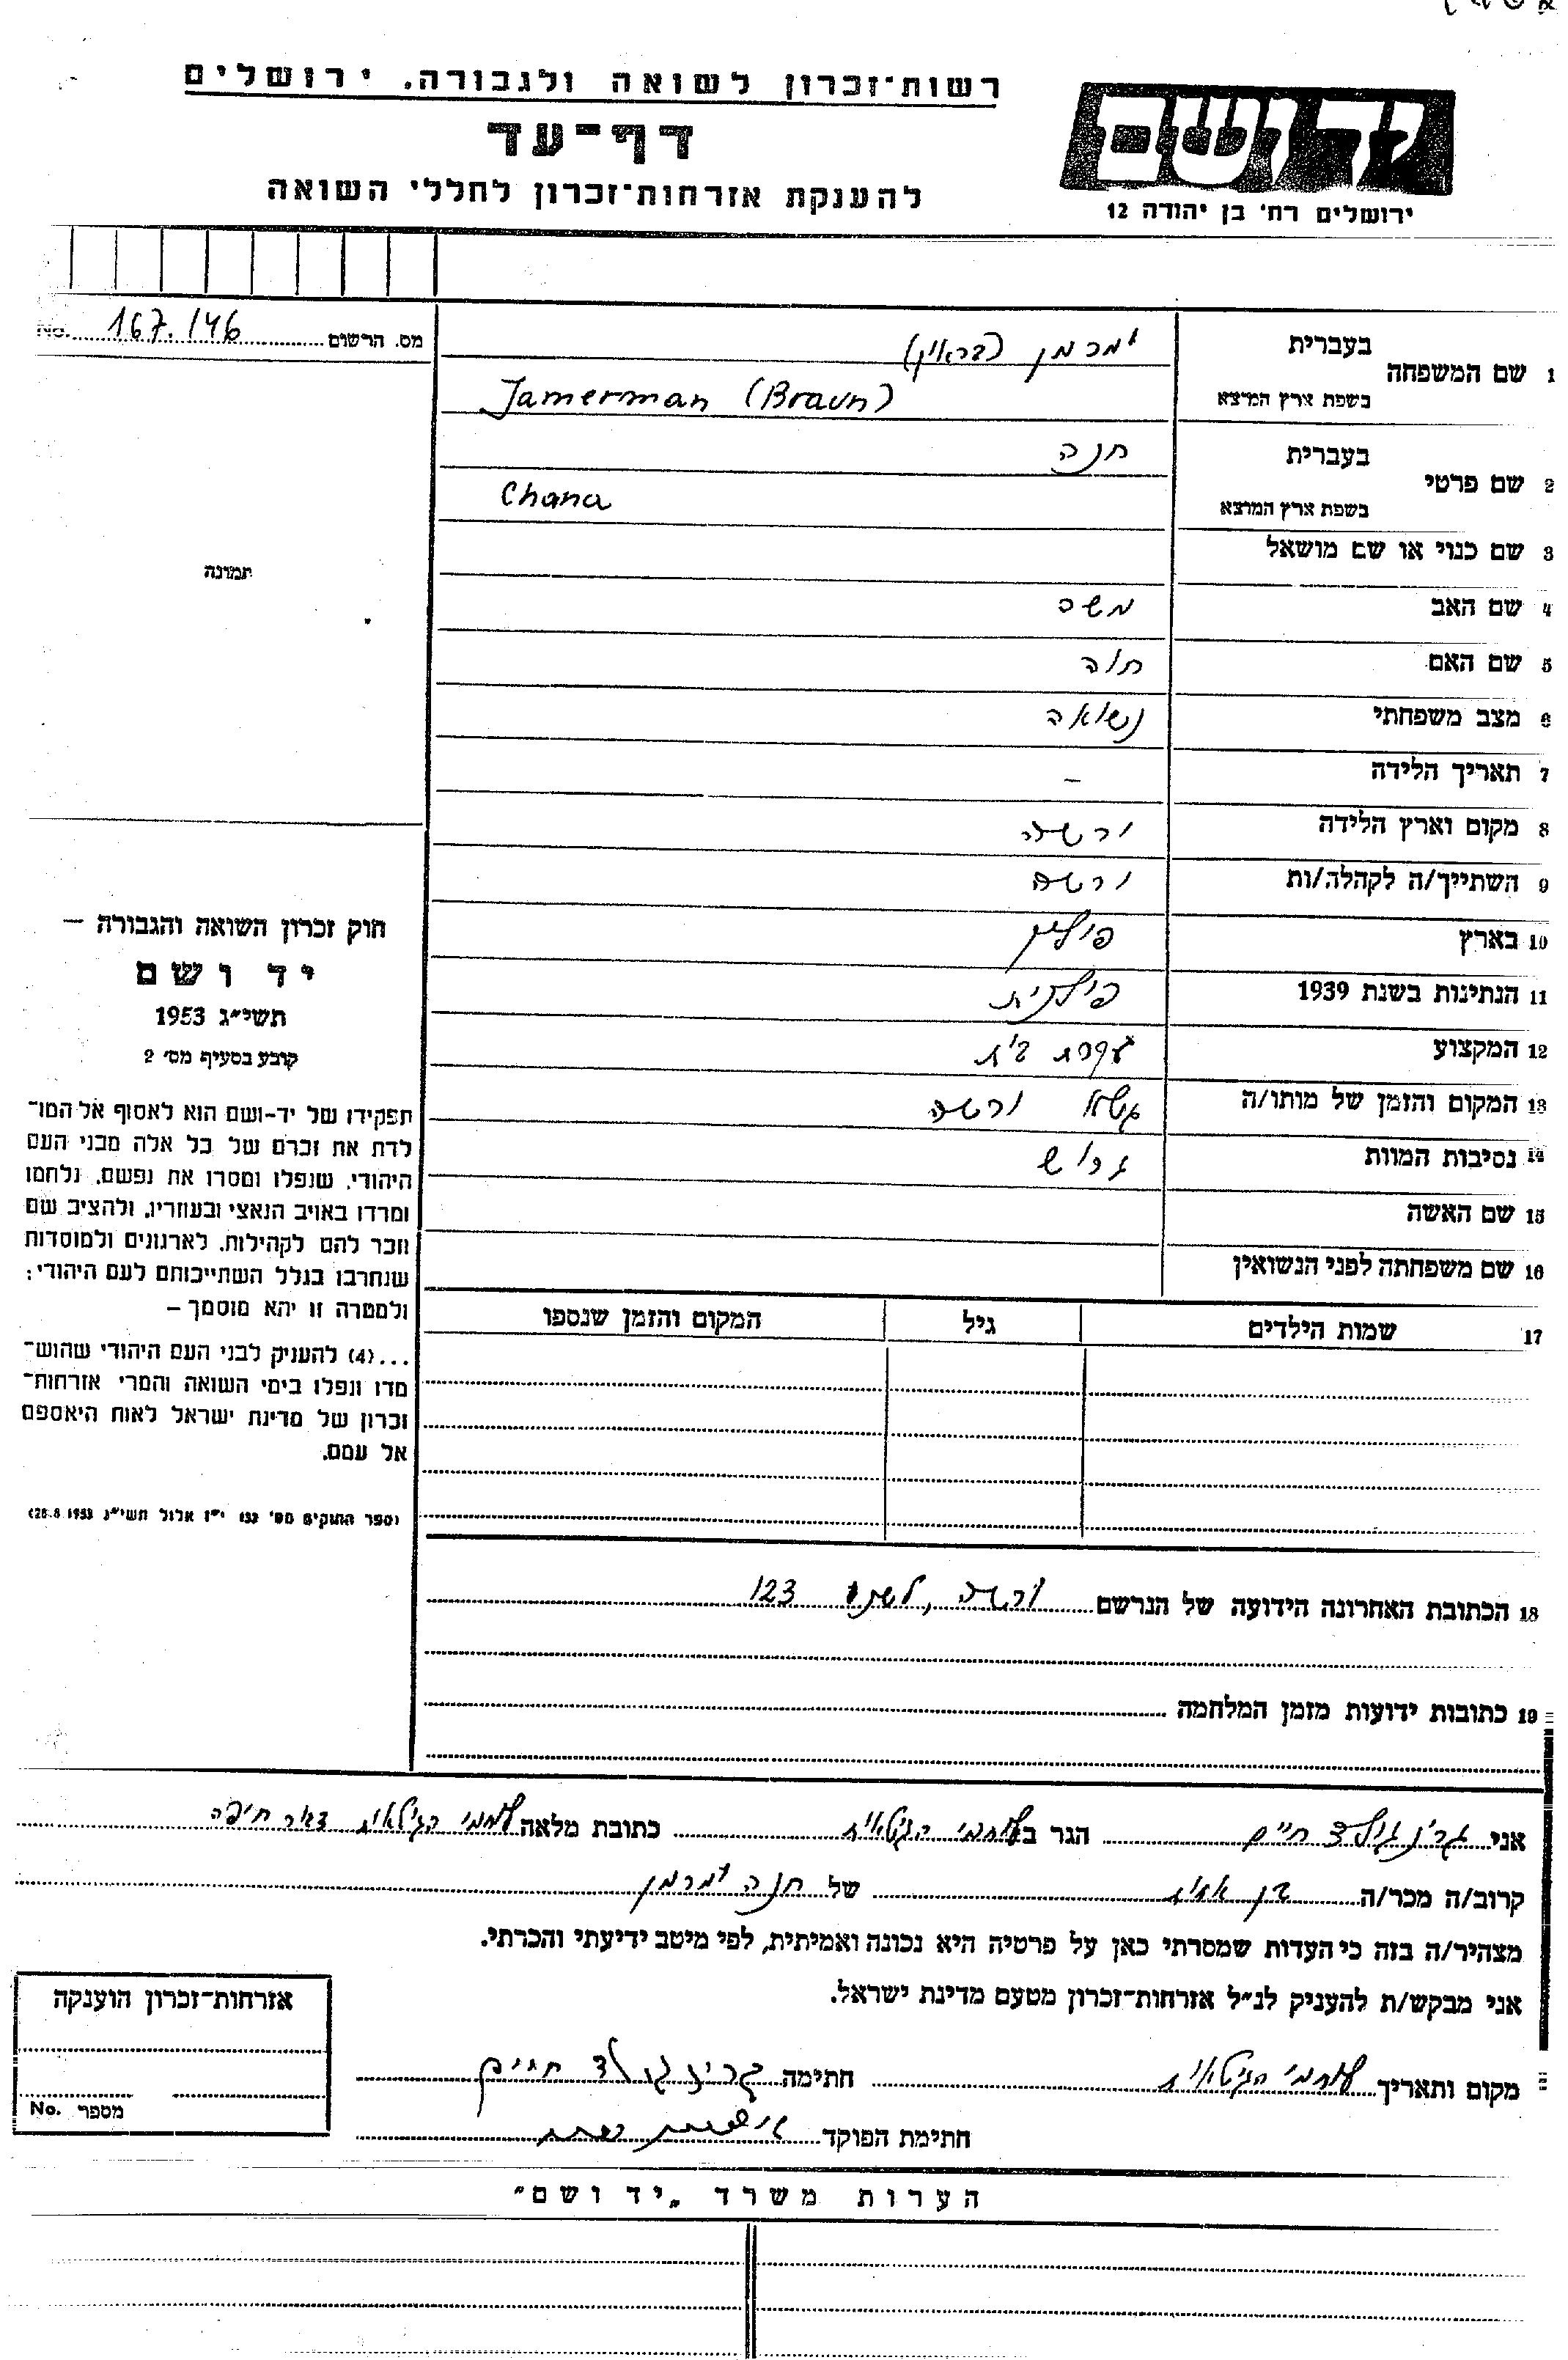 רשות־זכרון לשואה ולגבורה. ירושלים
דף־עד
להענקת אזרחות־זכרון לחללי השואה
יד ושם
ירושלים רח׳ בן יהודה 12
No. 167.146 מס. הרשום
1 שם המשפחה
בעברית ימרמן (בראון)
בשפת ארץ המוצא Jamerman (Braun)
2 שם פרטי
בעברית חנה
בשפת ארץ המוצא Chana
3 שם כנוי או שם מושאל
4 שם האב משה
5 שם האם חוה
6 מצב משפחתי נשואה
7 תאריך הלידה –
8 מקום וארץ הלידה ורשה
9 השתייך/ה לקהלה/ות ורשה
10 בארץ פולין
11 הנתינות בשנת 1939 פולנית
12 המקצוע עקרת בית
13 המקום והזמן של מותו/ה גטו ורשה
14 נסיבות המוות גרוש
15 שם האשה
16 שם משפחתה לפני הנשואין
17 שמות הילדים גיל המקום והזמן שנספו
תמונה
חוק זכרון השואה והגבורה —
יד ושם
תשי״ג 1953
קובע בסעיף מס׳ 2
תפקידו של יד-ושם הוא לאסוף אל המו־
לדת את זכרם של כל אלה מבני העם
היהודי, שנפלו ומסרו את נפשם, נלחמו
ומרדו באויב הנאצי ובעוזריו, ולהציב שם
וזכר להם לקהילות, לארגונים ולמוסדות
שנחרבו בגלל השתייכותם לעם היהודי;
ולמטרה זו יהא מוסמך —
...(4) להעניק לבני העם היהודי שהוש־
מדו ונפלו בימי השואה והמרי אזרחות־
זכרון של מדינת ישראל לאות היאספם
אל עמם.
(ספר החוקים מס׳ 132 י״ז אלול תשי״ג 28.8.1953)
18 הכתובת האחרונה הידועה של הנרשם ורשה, לשנו 123
19 כתובות ידועות מזמן המלחמה
אני גרינגולד חיים הגר ב לוחמי הגיטאות כתובת מלאה לוחמי הגיטאות דאר חיפה
קרוב/ה מכר/ה בן אחות של חנה ימרמן
מצהיר/ה בזה כי העדות שמסרתי כאן על פרטיה היא נכונה ואמיתית, לפי מיטב ידיעתי והכרתי.
אני מבקש/ת להעניק לנ״ל אזרחות־זכרון מטעם מדינת ישראל.
מקום ותאריך לוחמי הגיטאות חתימה גרינגולד חיים
חתימת הפוקד
אזרחות־זכרון הוענקה
No. מספר
הערות משרד „יד ושם״